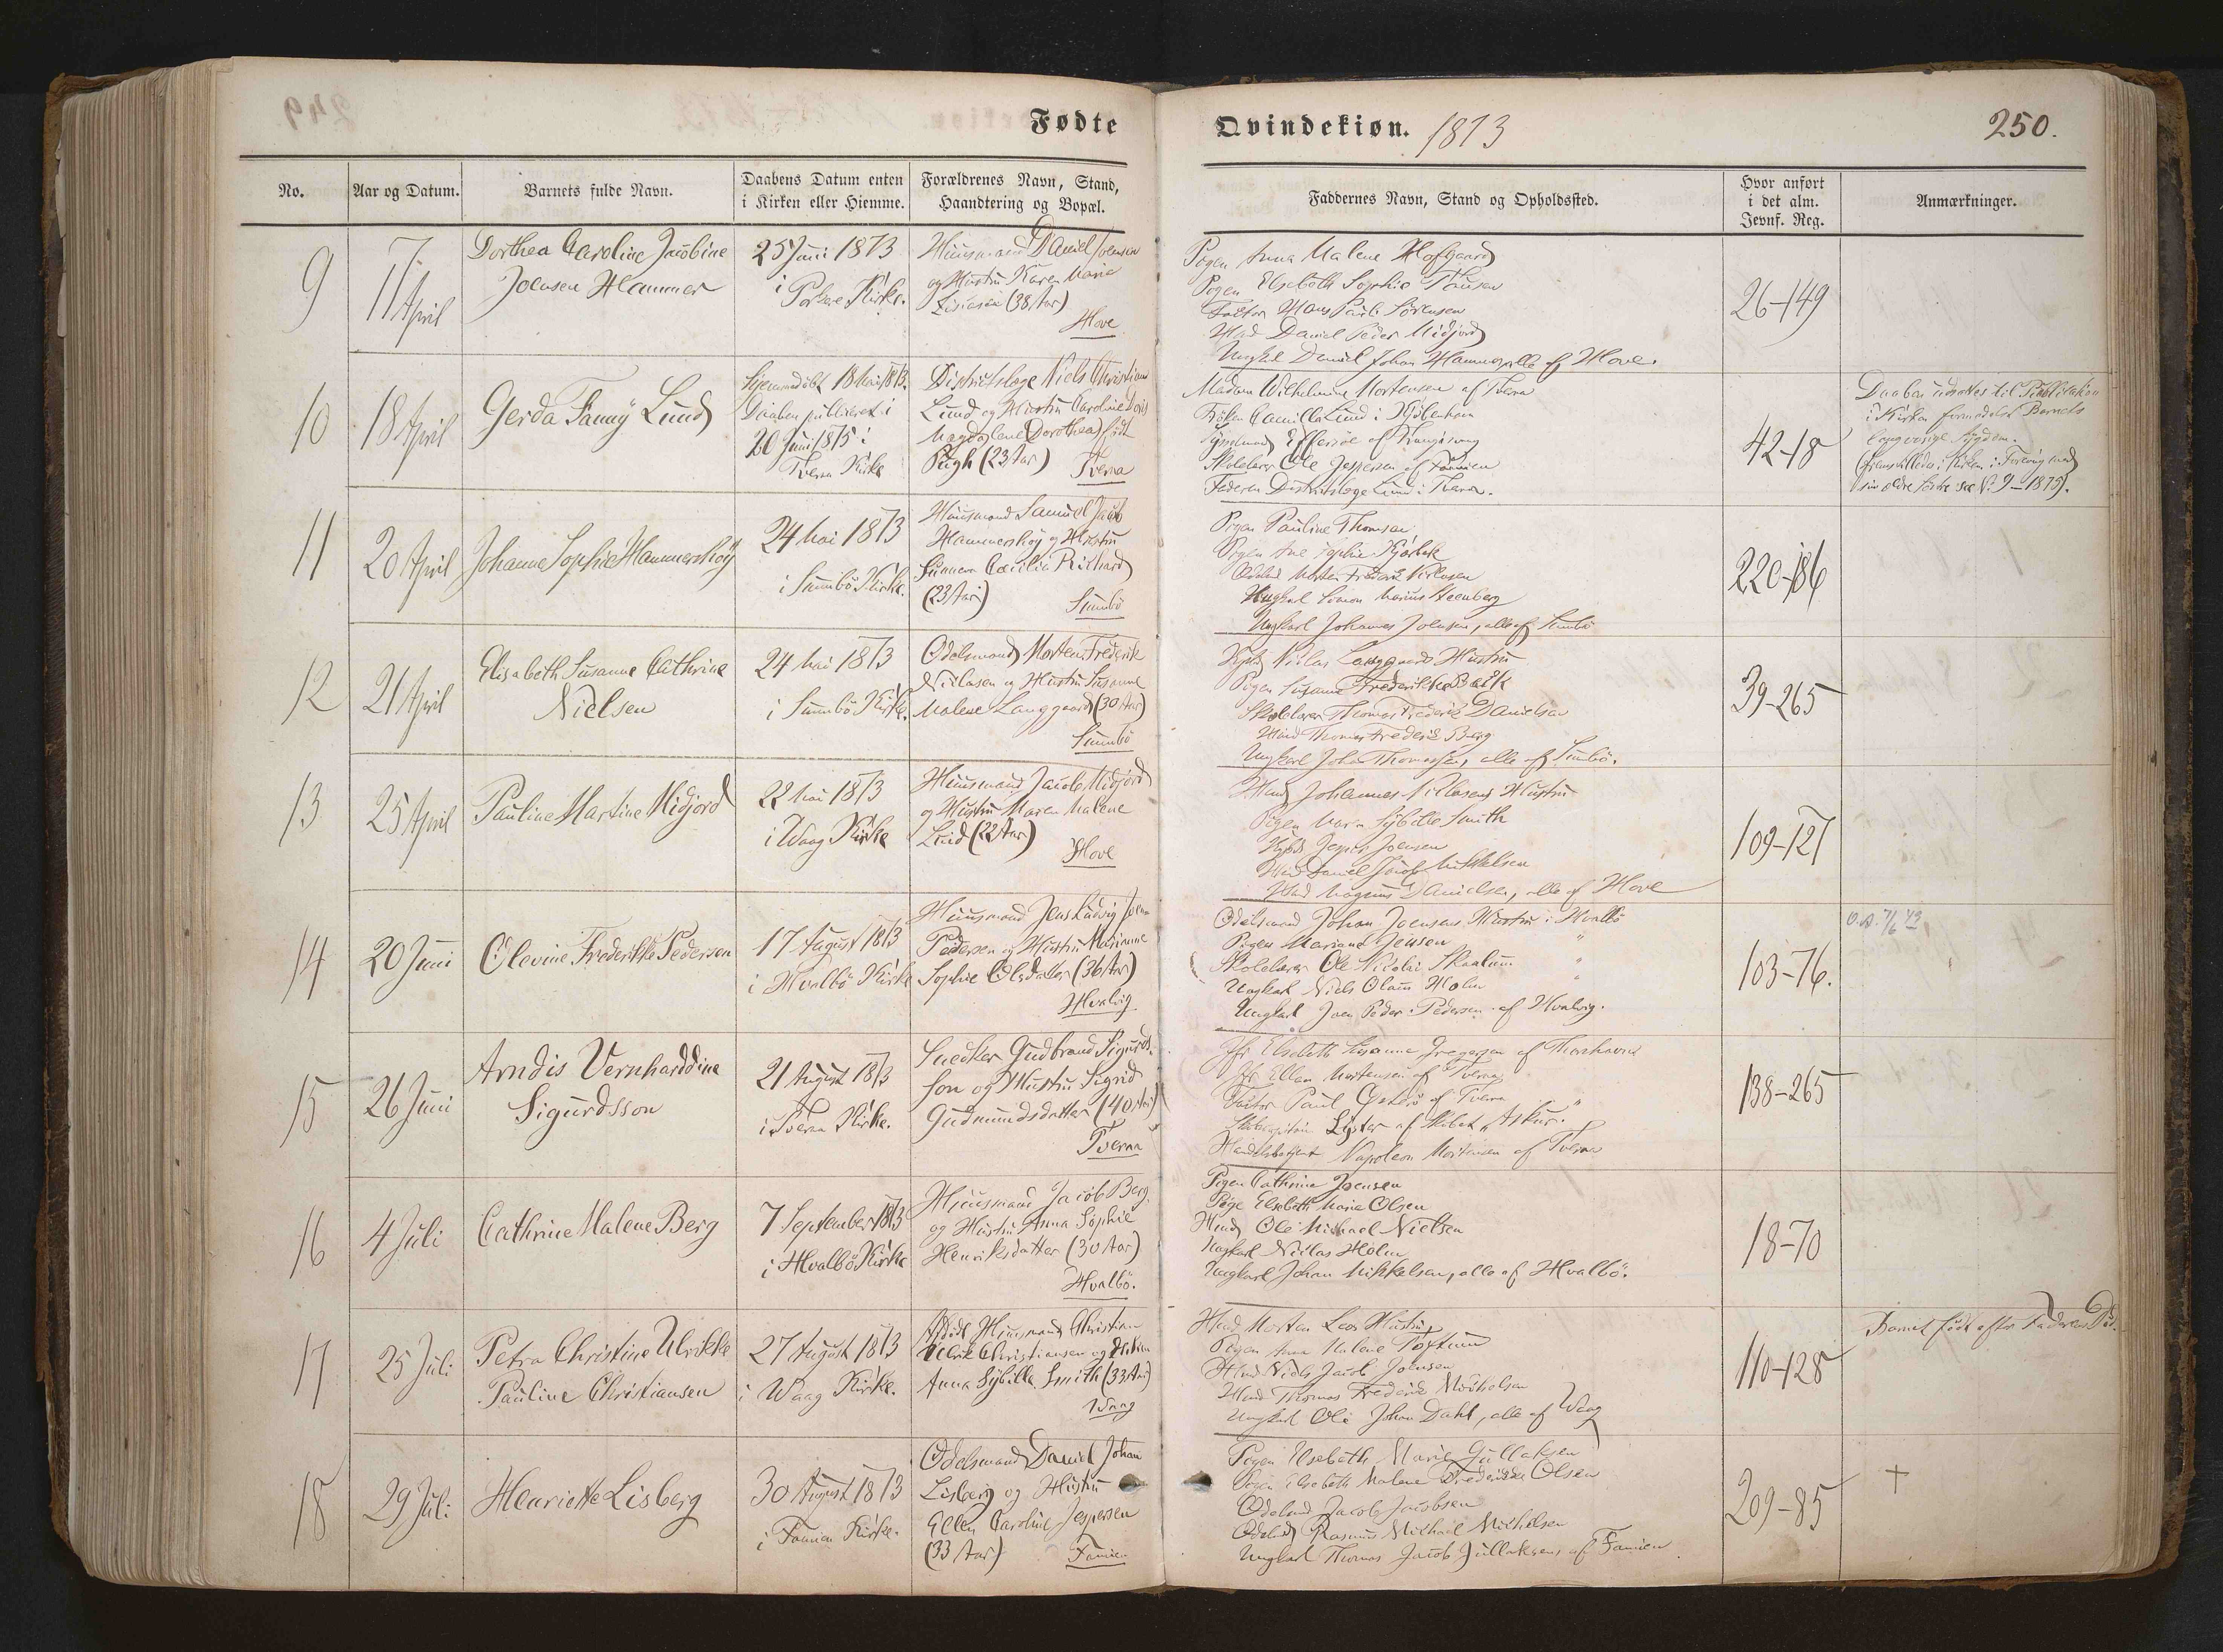 Fødte
Qvindekiøn. 1873
250.
No.
Aar og Datum.
Barnets fulde Navn.
Daabens Datum enten
i Kirken eller Hiemme.
Forældrenes Navn, Stand,
Haandtering og Bopæl.
Faddernes Navn, Stand og Opholdssted.
Hvor anført
i det alm.
Jevnf. Reg.
Anmærkninger.
9
11
April
Dorthea Caroline Jacobine
Joensen Hammer
25 Juni 1873
i Porkere Kirke.
Huusmand Daniel Joensen
og Hustru Karen Marie
(38 Aar)
Hove
Pigen Anna Malene Hofgaard
Pigen Elsebeth Sophie Thomsen
Factor Hans Paul Sørensen
Daniel Peder Midjord
Ungkl Daniel Johan Hammer, alle af Hove.
26-149
10
18 April
Gerda Fanny Lund
Hjemmedøbt 18 Mai 1873.
Daaben publiceret i
20 Juni 1875 i
Tverra Kirke
Districtslæge Niels Christian
Lund og Hustru Caroline Doris
Magdalene Dorothea født
Pugh (23 Aar) Tverra
Madam Wilhelmine Mortensen af Tverra
Frøken Camilla Lund i Kjöbenhavn
Sysselmand Effersøe af Trangisvaag
Skolelærer Ole Jespersen af Famien
Faderen Districtslæge Lund i Tverra.
42-18
Daaben udsattes til Publikation
i Kirken formedelst Barnets
langvarige Sygdom.
11
20 April
Johanne Sophie Hammershöj
24 Mai 1873
i Sumbö Kirke.
Huusmand Samuel Jacob
Hammershöj og Hustru
Sunneva Cæcilia Richard
(23 Aar)
Sumbö
Pigen Pauline Thomsen
Pigen Ane Sophie Kjærbæk
Odelsbd Morten Frederik Nielsen
Ungkarl Simon Marius Steenberg
Ungkarl Johannes Joensen, alle af Sumbö
220-186
12
21 April
Elisabeth Susanne Cathrine
Nielsen
24 Mai 1873
i Sumbö Kirke.
Odelsmand Morten Frederik
Nielsen og Hustru Susanne
Malene Langgaard (30 Aar)
Sumbö
Niclas Langgaards Hustru
Pigen Susanne Frederikke Bæk
Skolelærer Thomas Frederik Danielsen
Hmd Thomas Frederik Berg
Ungkarl Johan Thomassen, alle af Sumbö.
39-265
13
25 April
Pauline Martine Midjord
22 Mai 1873
i Waag Kirke
Huusmand Jacob Midjord
og Hustru Maren Malene
Lind (22 Aar)
Hove
Hmd Johannes Nielsens Hustru
Pigen Maria Sybille Smith
Joensen
Hmd Daniel Jacob Mikkelsen
Hmd Magnus Danielsen, alle af Hove
109-127
14
20 Juni
Olevine Frederikke Pedersen
17 August 1873
i Hvalbö Kirke
Huusmand Jens Ludvig Joen
Pedersen og Hustru Marianne
Sophie Olsdatter (36 Aar)
Hvalvig.
Odelsmand Johan Joensens Hustru i Hvalbö
Pigen Mariane Jensen "
Skolelærer Ole Nicolai Skaalum "
Ungkarl Niels Olaus Holm "
Ungkarl Joen Peder Pedersen af Hvalvig.
103-76.
15
26 Juni
Arndis Vernharddine
Sigurdsson
21 August 1873
i Tverra Kirke.
Snedker Gudbrand Sigurds-
son og Hustru Sigrid
Gudmundsdatter (40 Aar)
Tverra
Jfr Elsebeth Susanne Gregersen af Thorshavn
Jfr Ellen Mortensen af Tverra
Factor Paul Gethrö af Tverra
Skibscapitain Lyster af Skibet "Askur."
Napoleon Mortensen af Tverra
138-265
16
4 Juli
Cathrine Malene Berg
7 September 1873
i Hvalbö Kirke
Huusmand Jacob Berg
og Hustru Anna Sophie
Henriksdatter (30 Aar)
Hvalbö.
Pigen Cathrine Joensen
Pige Elsebeth Marie Olsen
Hmd Ole Michael Nielsen
Ungkarl Niclas Holm
Ungkarl Johan Mikkelsen, alle af Hvalbö.
18-70
17
25 Juli
Petra Christine Ulrikke
Pauline Christiansen
27 August 1873
i Waag Kirke.
Afdöd Huusmand Christian
Ulrik Christiansen og Hustru
Anna Sybille Smith (33 Aar)
Waag
Hmd Morten Leos Hustru
Pigen Anna Malene Toftum
Hmd Niels Jacob Joensen
Hmd Thomas Frederik Michelsen
Ungkarl Ole Johan Dahl, alle af Waag
110-128
Barnet född efter Faderens Död.
18
29 Juli
Henriette Lisberg
30 August 1873
i Famien Kirke.
Odelsmand Daniel Johan
Lisberg og Hustru
Ellen Caroline Jespersen
(33 Aar)
Famien
Pigen Elsebeth Marie Gullaksen
Pigen Elsebeth Malene Frederikke Olsen
Odelsmd Jacob Jacobsen
Odelsmd Rasmus Michael Michelsen
Ungkarl Thomas Jacob Gullaksen, af Famien.
209-85
+